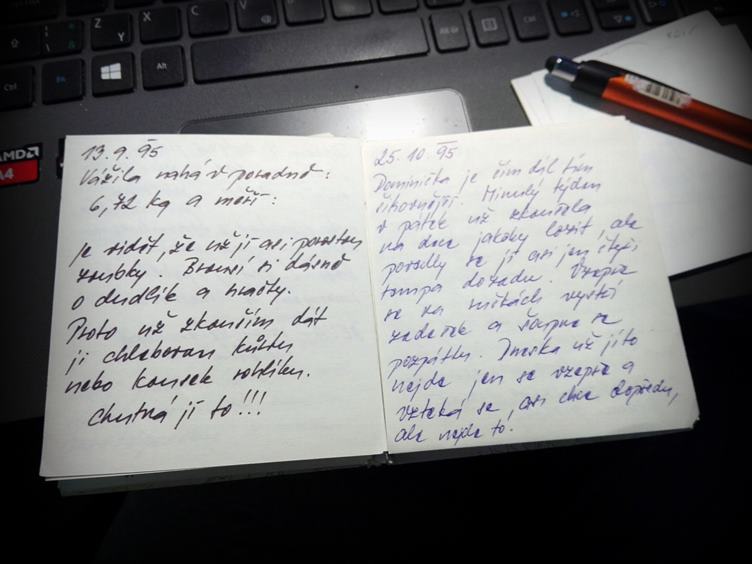 Z
X
C
V
B
N
M
Alt Gr
Ctrl
Ctrl
Fn
Alt
AMD
A4
13. 9. 95
Vážila nahá v poradně:
6,72 kg a měří:
Je vidět, že už jí asi porostou
zoubky. Brousí si dásně
o dudlík a hračky.
Proto už zkouším dát
jí chlebovou kůrku
nebo kousek rohlíku.
Chutná jí to!!!
25. 10. 95
Dominička je čím dál tím
šikovnější. Minulý týden
v pátek už zkoušela
na dece jakoby lozit, ale
povedly se jí asi jen čtyři
tempa dozadu. Vzepre
se na ručkách vystrčí
zadeček a šoupne se
pozpátku. Dneska už jí to
nejde jen se vzepre a
vzteká se, asi chce dopředu,
ale nejde to.